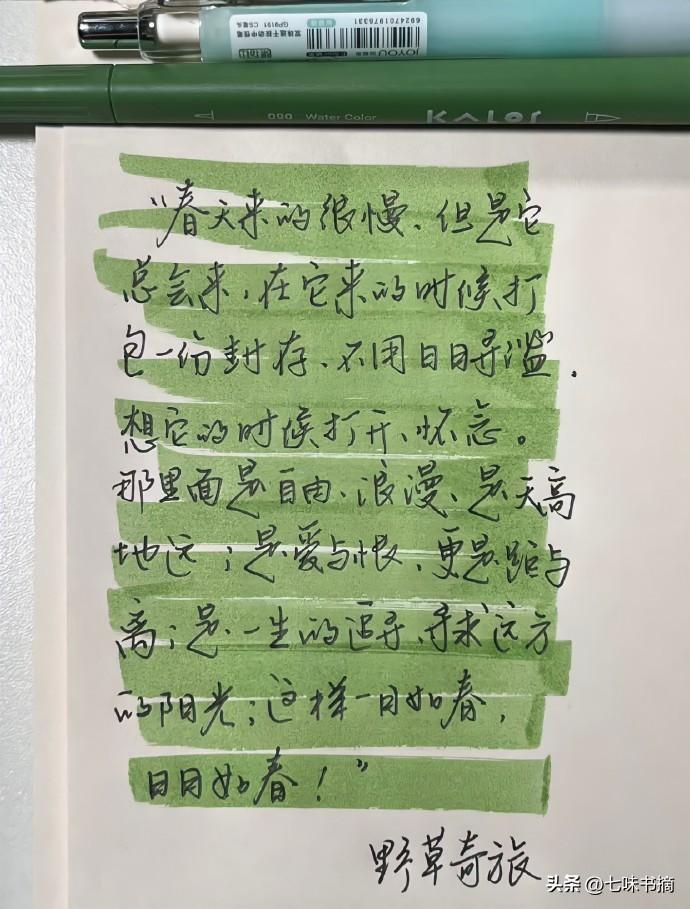 6924701976331
双珠速干按动中性笔
GP9191 CS笔头
JOYOU
090 Water Color KALOR
“春天来的很慢、但是它
总会来,在它来的时候打
包一份封存、不用日日寻滥.
想它的时候打开、怀念。
那里面是自由、浪漫、是天高
地远;是爱与恨,更是距与
离;是一生的追寻,寻求远方
的阳光;这样一日如春,
日日如春!”
野草奇旅
头条 @七味书摘